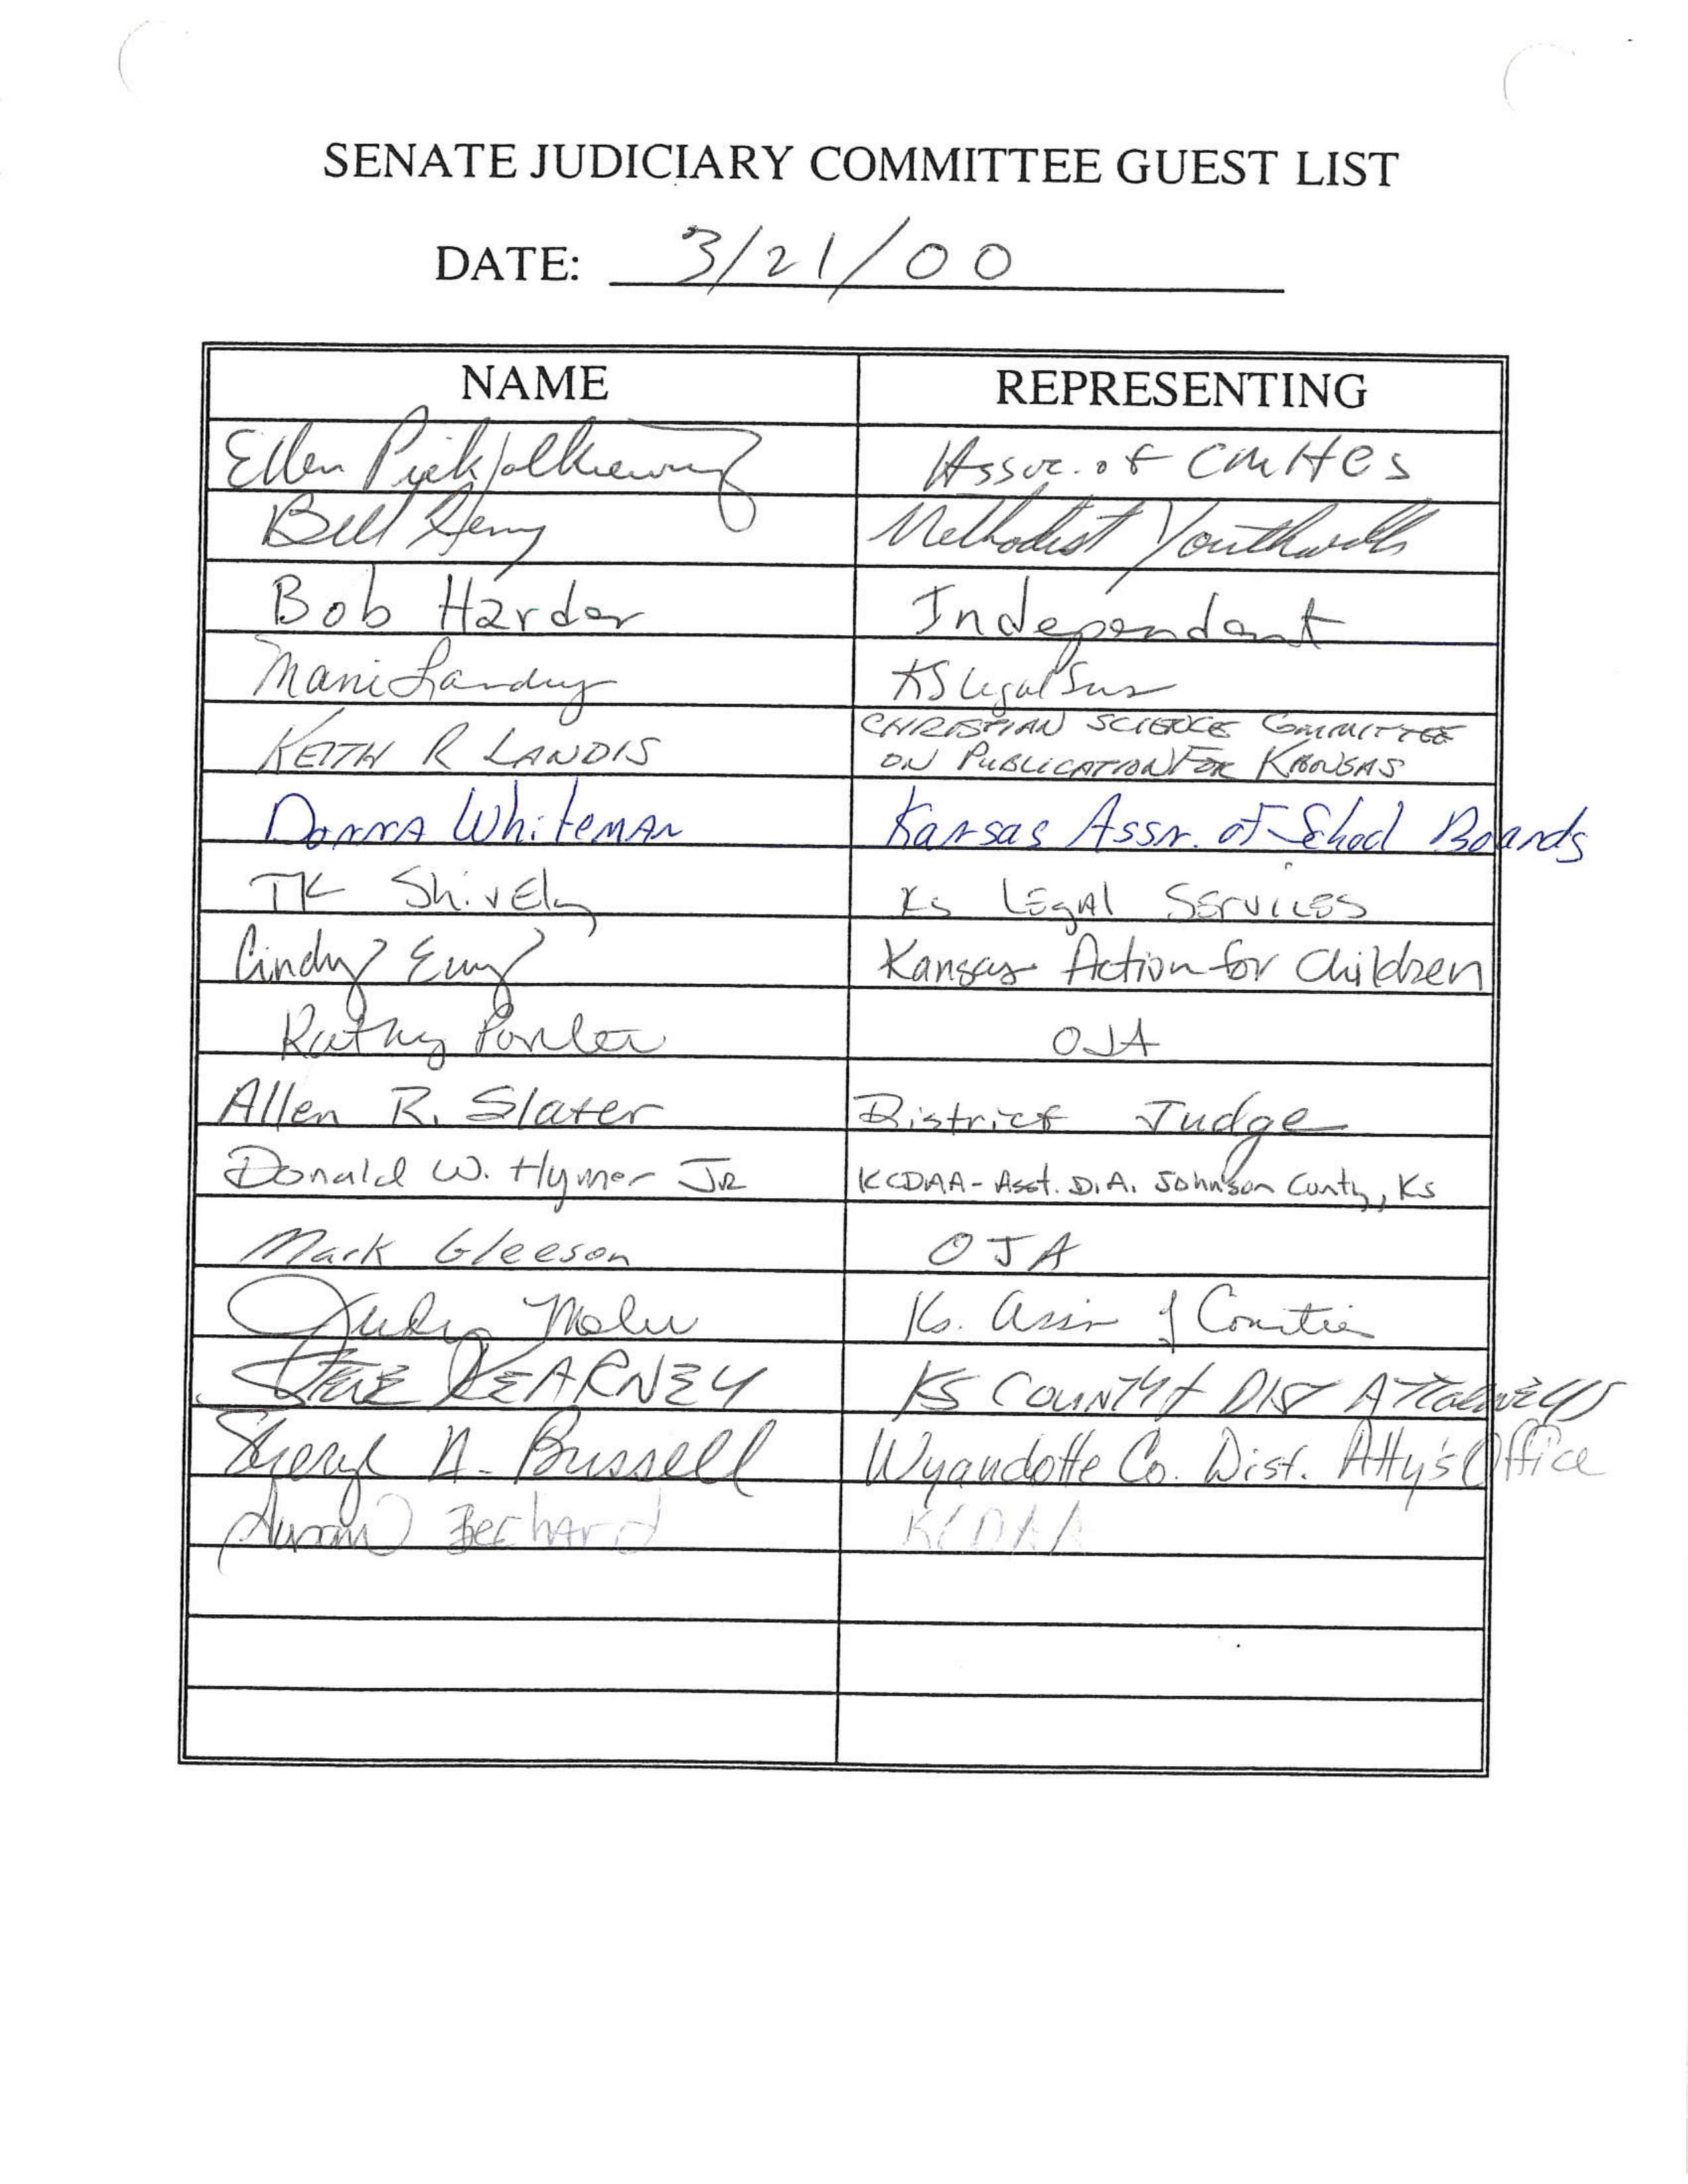 SENATE JUDICIARY COMMITTEE GUEST LIST
DATE: 3/21/00
NAME REPRESENTING
Ellen Assoc. of
Bill Henry Methodist Youthville
Bob Harder Independent
Landry KS Legal
KEITH R LANDIS CHRISTIAN SCIENCE COMMITTEE
ON PUBLICATION FOR KANSAS
Donna Whiteman Kansas Assn. of School Boards
TK Shively Ks Legal Services
Cindy Kansas Action for Children
Kathy Porter OJA
Allen R. Slater District Judge
Donald W. Hymer JR KCDAA - Asst. D.A. Johnson County, KS
Mark Gleeson OJA
Judy Moler Ks. Assn of Counties
STEVE KEARNEY KS COUNTY & DIST ATTORNEYS
Sheryl Bussell Wyandotte Co. Dist. Atty's Office
Bechard KCDAA